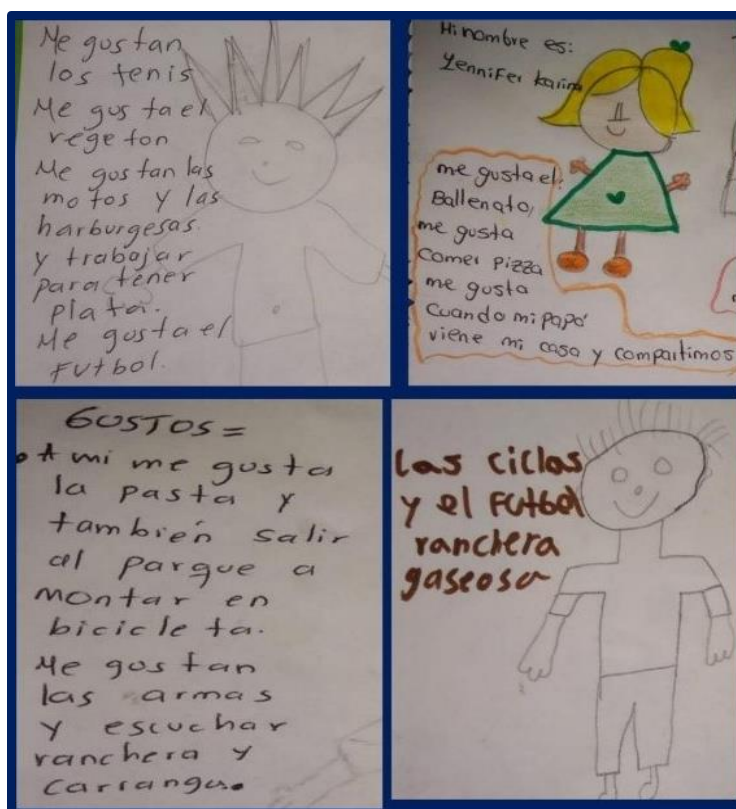 Me gustan
los tenis
Me gusta el
regeton
Me gustan las
motos y las
harburgesas
y trabajar
para tener
plata.
Me gusta el
FUtbol.
Mi nombre es:
Yennifer karim
me gusta el:
Ballenato,
me gusta
Comer pizza
me gusta
Cuando mi papá
viene mi casa y compartimos
GUSTOS=
• A mi me gusta
la pasta y
también salir
al parque a
montar en
bicicleta.
Me gustan
las armas
y escuchar
ranchera y
carranga.
Las ciclas
y el FUtbol
ranchera
gaseosa